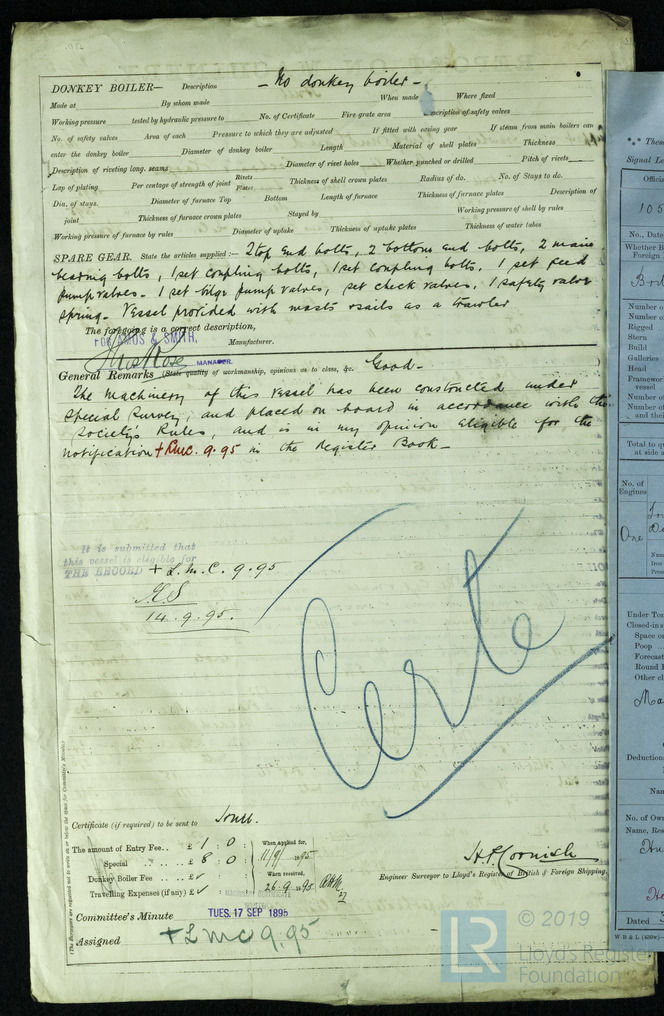 DONKEY BOILER— Description — No donkey boiler —
Made at By whom made When made Where fixed
Working pressure tested by hydraulic pressure to No. of Certificate Fire grate area Description of safety valves
No. of safety valves Area of each Pressure to which they are adjusted If fitted with easing gear If steam from main boilers can
enter the donkey boiler Diameter of donkey boiler Length Material of shell plates Thickness
Description of riveting long. seams Diameter of rivet holes Whether punched or drilled Pitch of rivets
Lap of plating Per centage of strength of joint Rivets Plates Thickness of shell crown plates Radius of do. No. of Stays to do.
Dia. of stays. Diameter of furnace Top Bottom Length of furnace Thickness of furnace plates Description of
joint Thickness of furnace crown plates Stayed by Working pressure of shell by rules
Working pressure of furnace by rules Diameter of uptake Thickness of uptake plates Thickness of water tubes
SPARE GEAR. State the articles supplied:— 2 top end bolts, 2 bottom end bolts, 2 main
bearing bolts, 1 set coupling bolts, 1 set coupling bolts, 1 set feed
pump valves - 1 set bilge pump valves, set check valves, 1 safety valve
spring - Vessel provided with masts & sails as a trawler
The foregoing is a correct description,
FOR AMOS & SMITH, Manufacturer.
MANAGER.
General Remarks (State quality of workmanship, opinions as to class, &c. Good -
The machinery of this vessel has been constructed under
Special Survey, and placed on board in accordance with the
Society's Rules, and is in my opinion eligible for the
notification + LMC. 9.95 in the Register Book -
It is submitted that
this vessel is eligible for
THE RECORD + L.M.C. 9.95
14.9.95.
Certe
Certificate (if required) to be sent to
The amount of Entry Fee.. £ 1 : 0 : When applied for,
Special .. .. £ 8 : 0 : 11/9/ 1895
Donkey Boiler Fee .. £ When received,
Travelling Expenses (if any) £ 26.9.1895
H.P. Cornish
Engineer Surveyor to Lloyd's Register of British & Foreign Shipping.
Committee's Minute TUES. 17 SEP 1895
Assigned + LMC 9.95
(The Surveyors are requested not to write on or below the space for Committee's Minute.)
These
Signal Le
Offici
105
No., Date
Whether B
Foreign
Number of
Number of
Rigged
Stern
Build
Galleries
Head
Framewor
vessel
Number of
Number of
and thei
Total to qu
at side a
No. of
Engines
One
Under To
Closed-in
Space o
Poop
Forecast
Round H
Other cl
Deduction
Nam
No. of Ow
Name, Res
Hu
Dated
W B & L
LR © 2019
Lloyd's Register
Foundation